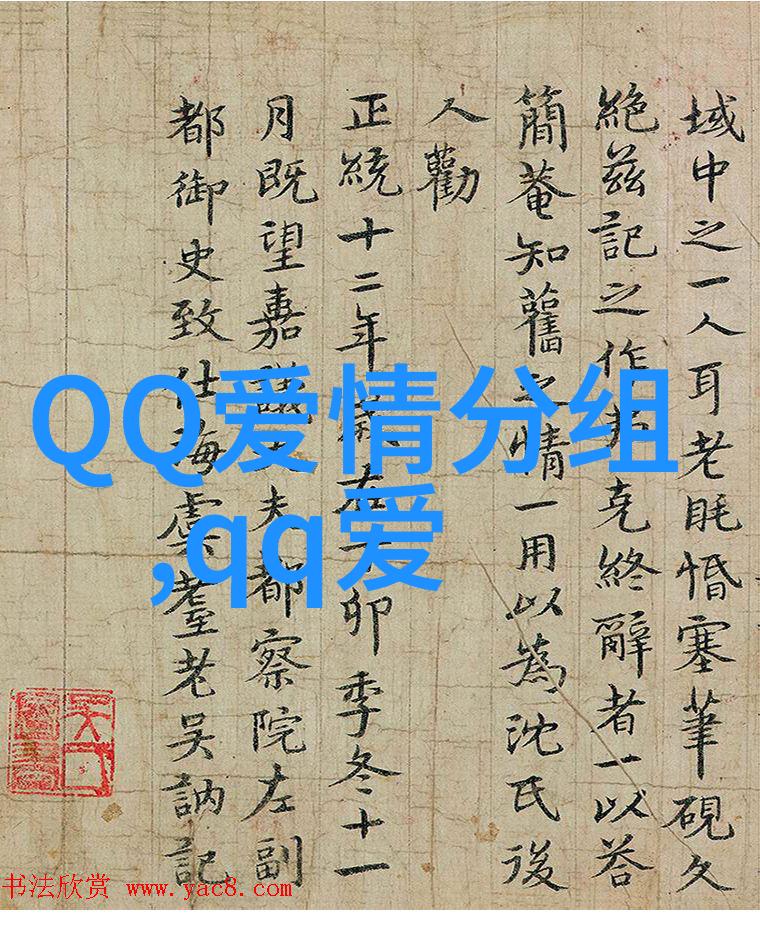 域中之一人耳老眊惛塞筆硯久
絶茲記之作克終辭者一以荅
簡菴知舊之情一用以為沈氏後
人勸
正統十二年歲在丁卯季冬十一
月既望嘉議大夫都察院左副
都御史致仕海虞耋老吳訥記
QQ爱情分组
,qq爱
书法欣赏 www.yac8.com